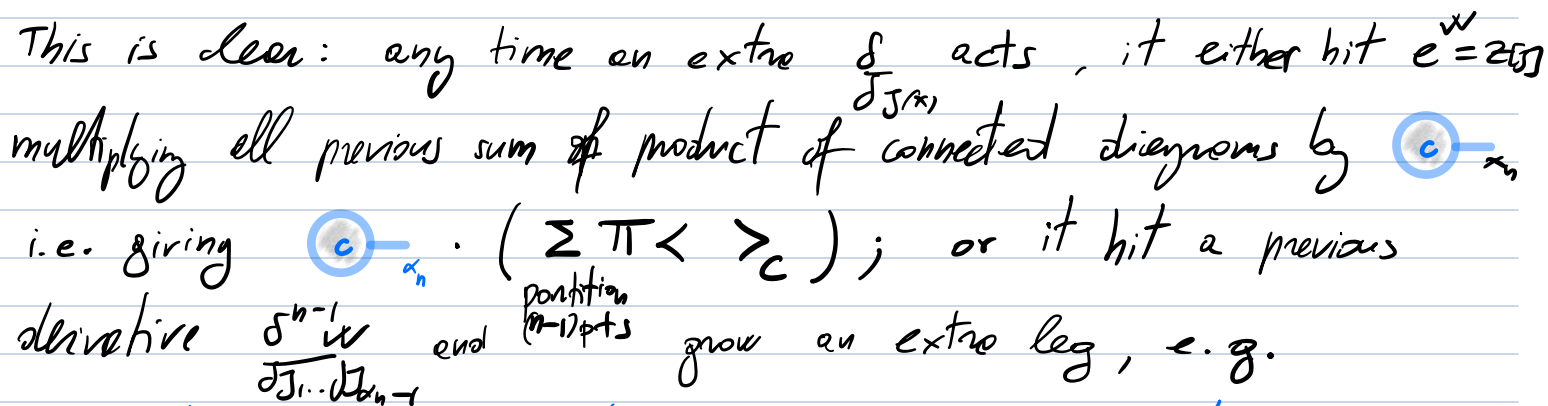 This is clear: any time an extra δ/δJ(x) acts, it either hit e^W = Z[J]
multiplying all previous sum of product of connected diagrams by C x_n
i.e. giving C x_n · ( Σ Π < >_C ) ; or it hit a previous
partition
(n-1) pts
derivative δ^{n-1} W / δJ_1...δJ_{x_{n-1}} and grow an extra leg, e.g.